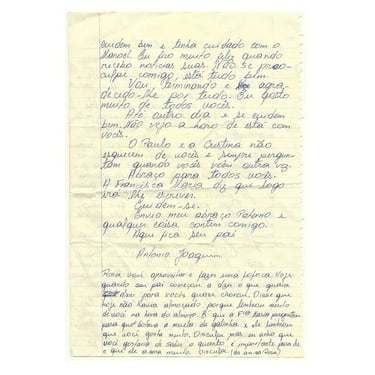 cuidem bem e tenha cuidado com o
Manoel. Eu fico muito feliz quando
recebo notícias suas. Não se preo-
culpe comigo, está tudo bem.
Vou terminando e agra-
decego-lhe por tudo. Eu gosto
muito de todos vocês.
Até outro dia e se cuidem
bem. Não vejo a hora de está com
vocês.
O Paulo e a Cristina não
esquecem de vocês e sempre pergun-
tam quando vocês vêm outra vez.
Abraço para todos vocês.
A Francisca Maria diz que logo
irá lhe escrever.
Cuidem-se.
Envio meu abraço Paterno e
qualquer coisa contem comigo.
Aqui fica seu pai
Antonio Joaquim
Rosa vou aproveitar e fazer uma fofoca. Hoje
quando seu pai começou a dizer o que queria
dizer para vocês quase chorou. Disse que
hoje não havia almoçado porque lembrou muito
de você na hora do almoço. É que a Fca havia perguntado
para que botava a muela da galinha e ele lembrou
que você gosta muito. Desculpe mas eu acho que
você gostaria de saber o quanto é importante para ele
e que ele a ama muito. Desculpa